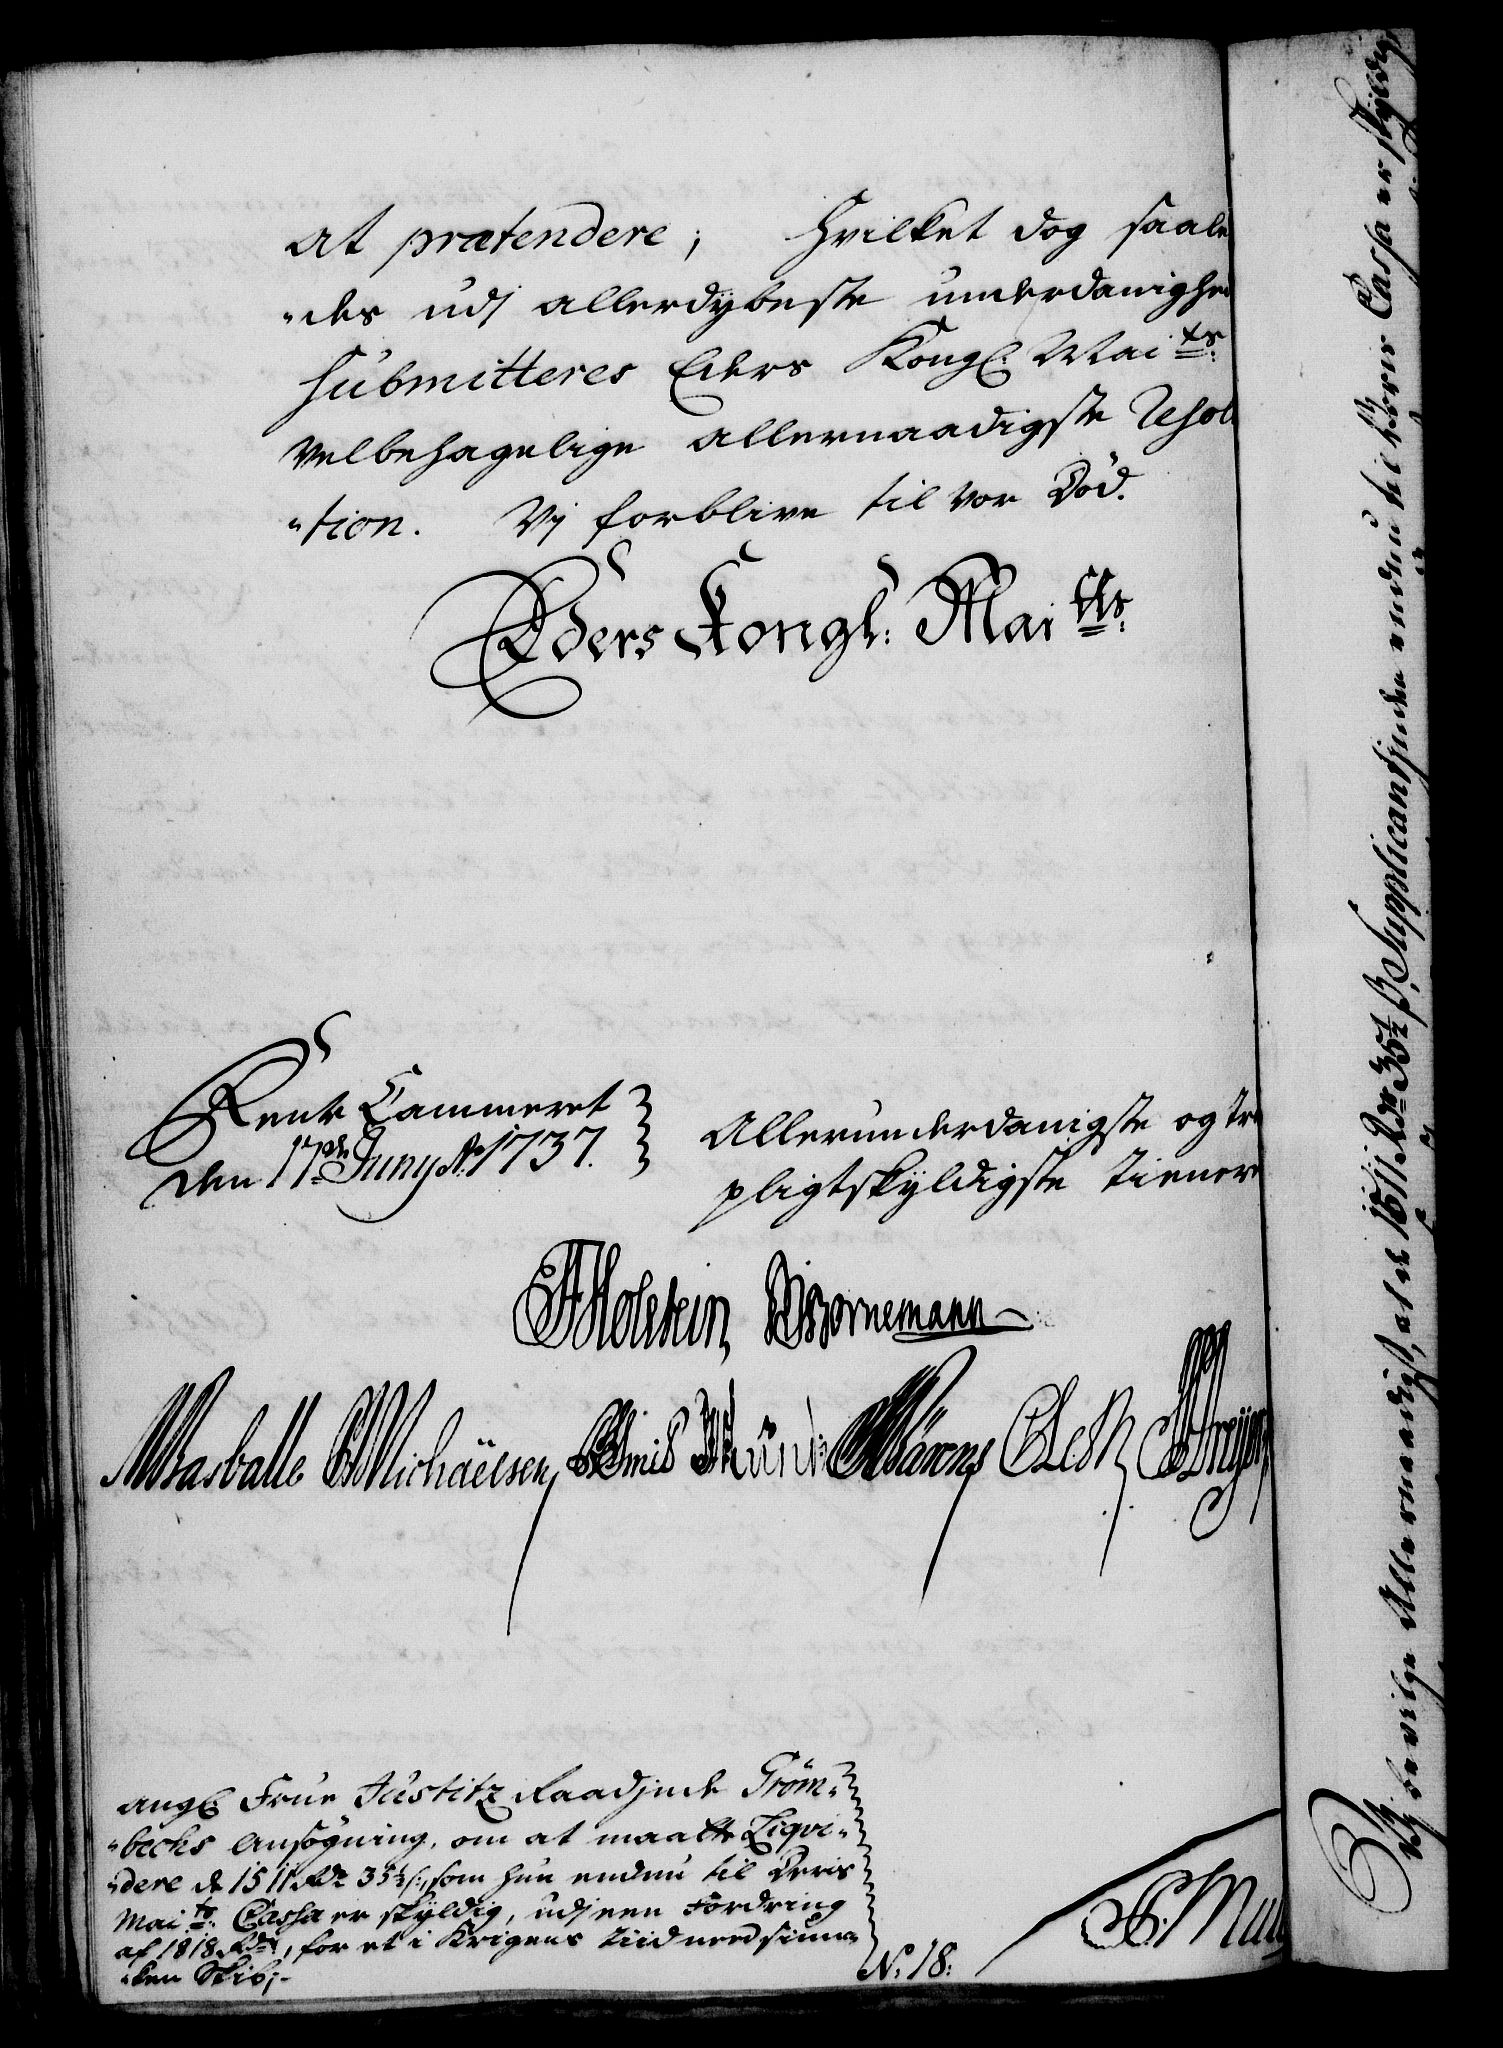 at prætendere; Hvilket dog saale
"des udj allerdybeste underdanighed
submitteres Eders Kongl: Mai.ts:
Velbehagelige allernaadigste Resolu
"tion. Vj forblive til vor Död.
Eders Kongl: Mai.tts:
Rente Cammeret
den 17de Juny Ao 1737.
Allerunderdanigste og tro
pligtskyldigste tienere
Holstein Bornemann
Basballe Michaëlsen
Angl: Frue Justitz Raadjnde Tröm"
"becks Ansögning, om at maatte Liqvi"
"dere de 1511 Rdr 35½ s:, som hun endnu til Deris
Mai.ts: Cassa er skyldig, udj een Fordring
af 1818 Rdr, for et i Krigens tiid nedsunc"
"ken Skib;
N: 18:
Vj bevilge Allernaadigst, at de 1511 Rdr 35½ s, Supplicantjnden endnu til Vores Cassa er skyldig